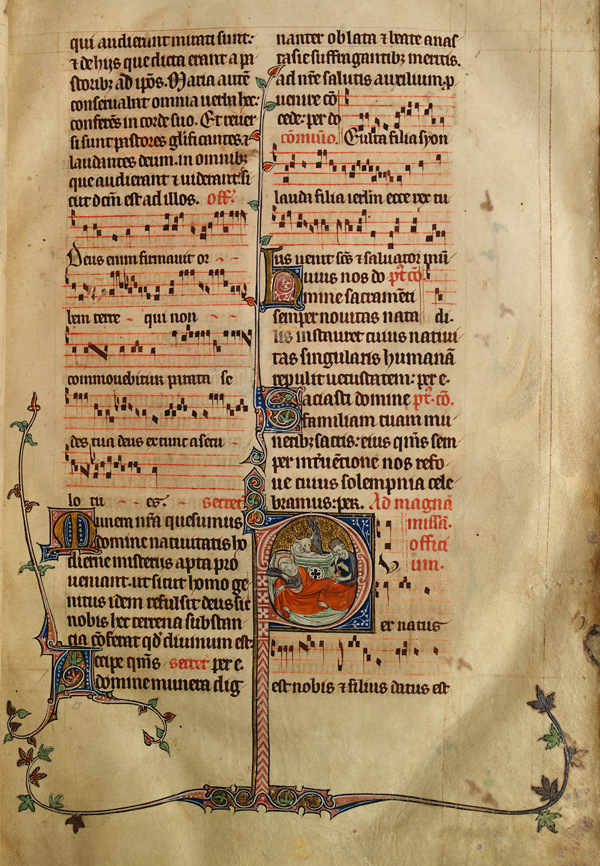 qui audierunt mirati sunt:
⁊ de hijs que dicta erant a pa
storibꝰ ad ip̄os. Maria autē
conseruabat omnia uerba hec:
conferēs in corde suo. Et reuer
si sunt pastores gl̓ificantes. ⁊
laudantes deum. in omnibꝫ
que audierant ⁊ uiderant: si
cut dc̄m est ad illos. off̓.
Deus enim firmauit or
bem terre qui non
commouebitur parata se
des tua deus ex tunc a secu
lo tu es. secret̓
Munera nr̄a quesumus
domine natiuitatis ho
dierne misterijs apta pro
ueniant. ut sicut homo ge
nitus idem refulsit deus sic
nobis hec terrena substan
cia cōferat qd̓ diuinum est.
Accipe qm̄s secret̓ per e.
domine munera dig
nanter oblata ⁊ beate anas
tasie suffragantibꝫ meritis.
ad nr̄e salutis auxilium ꝓ
uenire cō
cede. per do
cōmuīo. Exulta filia syon
lauda filia ierl̄m ecce rex tu
us uenit sc̄s ⁊ saluator mūdi
Huius nos do pt̄ cō.
mine sacramēti
semper nouitas nata di.
lis instauret cuius natiui
tas singularis humanā
repulit uetustatem: per e.
Saciasti domine pt̄ cō.
familiam tuam mu
neribꝫ sacris: eius qm̄s sem
per int̓uētione nos refo
ue cuius solempnia cele
bramus: per. Ad magnā
missā.
offici
um.
Puer natus
est nobis ⁊ filius datus est